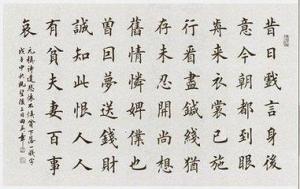 昔日戲言身後
意今朝都到眼
前來衣裳已施
行看盡針線猶
存未忍開尚想
舊情憐婢僕也
曾因夢送錢財
誠知此恨人人
有貧夫妻百事
哀
元稹詩遣悲懷
落一賤字
戊子中秋